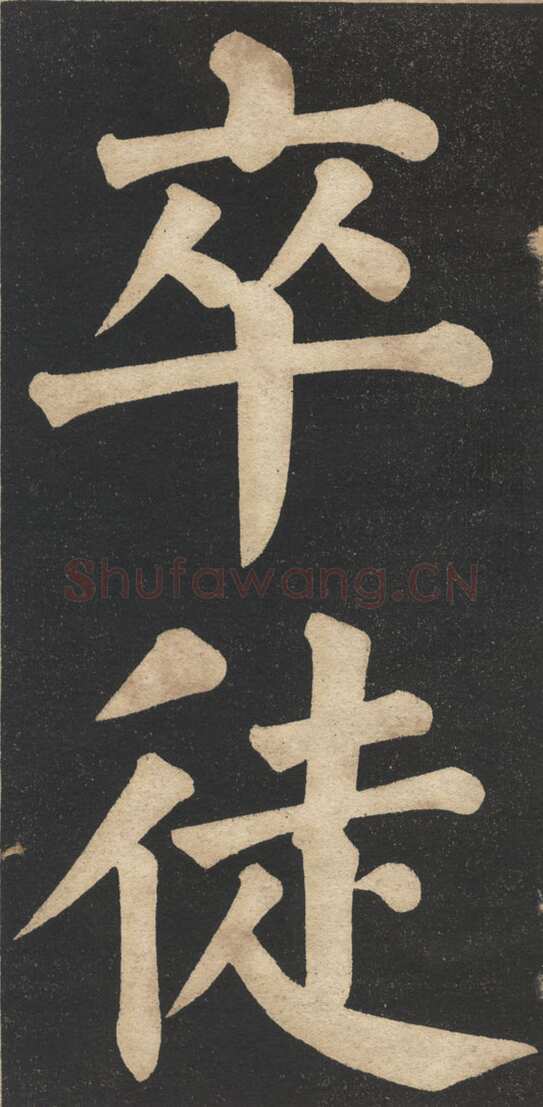 卒
徒
Shufawang.CN